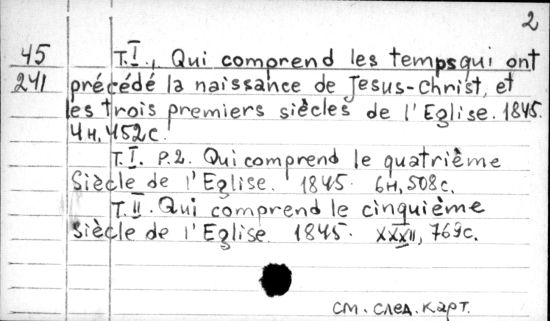 2
45 T.I., Qui comprend les temps qui ont
241 précédé la naissance de Jesus-Christ, et
les trois premiers siècles de l'Eglise. 1845.
4н, 452с.
T.I. P.2. Qui comprend le quatrième
Siècle de l'Eglise. 1845. 6н, 508с.
T.II. Qui comprend le cinquième
siècle de l'Eglise. 1845. XXXII, 769с.
см. след. карт.